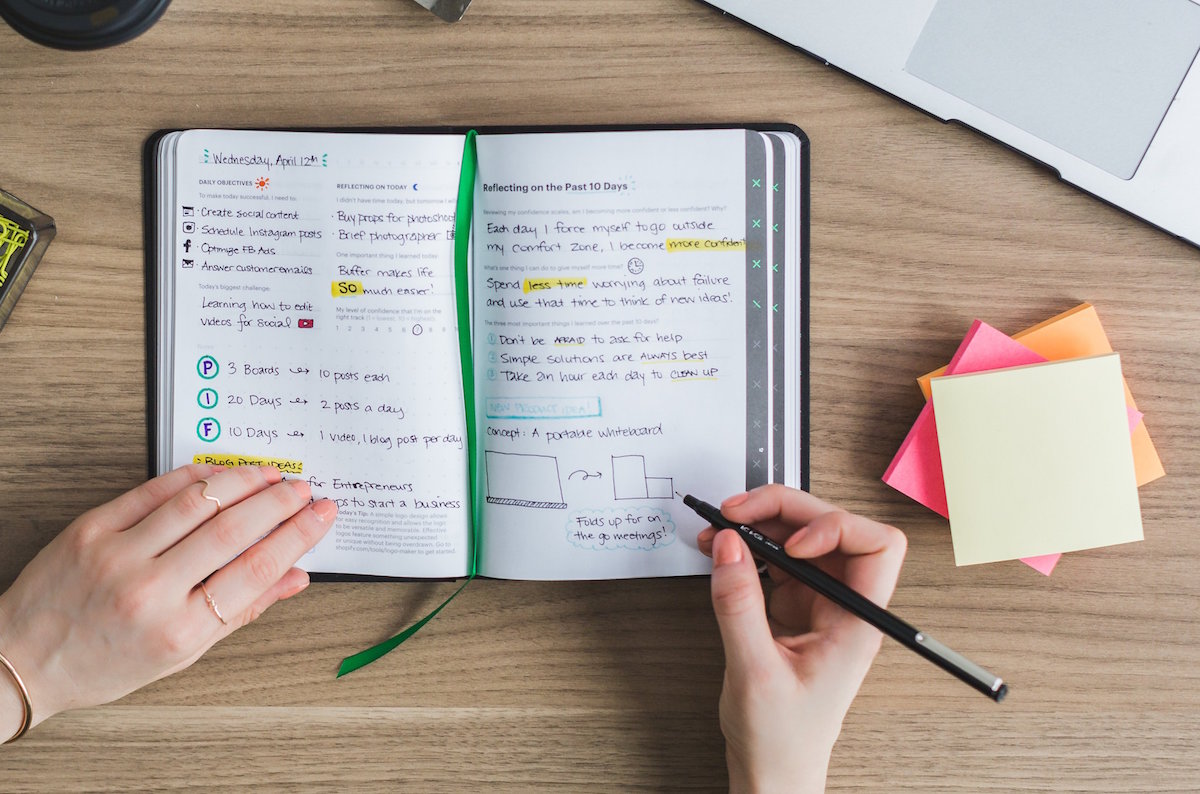 Wednesday, April 12th
DAILY OBJECTIVES
To make today successful, I need to:
· Create social content
· Schedule Instagram posts
· Optimize FB Ads
· Answer customer emails
Today's biggest challenge:
Learning how to edit
videos for social
REFLECTING ON TODAY
I didn't have time today, but tomorrow I
· Buy props for photoshoot
· Brief photographer
One important thing I learned today:
Buffer makes life
SO much easier!
My level of confidence that I'm on the
right track (1 = lowest, 10 = highest):
1 2 3 4 5 6 7 8 9
Notes
P 3 Boards 10 posts each
I 20 Days 2 posts a day
F 10 Days 1 video, 1 blog post per day
BLOG POST IDEAS:
for Entrepreneurs
to start a business
Today's Tip: A simple logo design allows
for easy recognition and allows the logo
to be versatile and memorable. Effective
logos feature something unexpected
or unique without being overdrawn. Go to
shopify.com/tools/logo-maker to get started.
Reflecting on the Past 10 Days
Reviewing my confidence scales, am I becoming more confident or less confident? Why?
Each day I force myself to go outside
my comfort zone, I become more confident
What's one thing I can do to give myself more time?
Spend less time worrying about failure
and use that time to think of new ideas!
The three most important things I learned over the past 10 days?
1 Don't be AFRAID to ask for help
2 Simple solutions are ALWAYS best
3 Take an hour each day to CLEAN UP
NEW PRODUCT IDEA!
Concept: A portable whiteboard
Folds up for on
the go meetings!